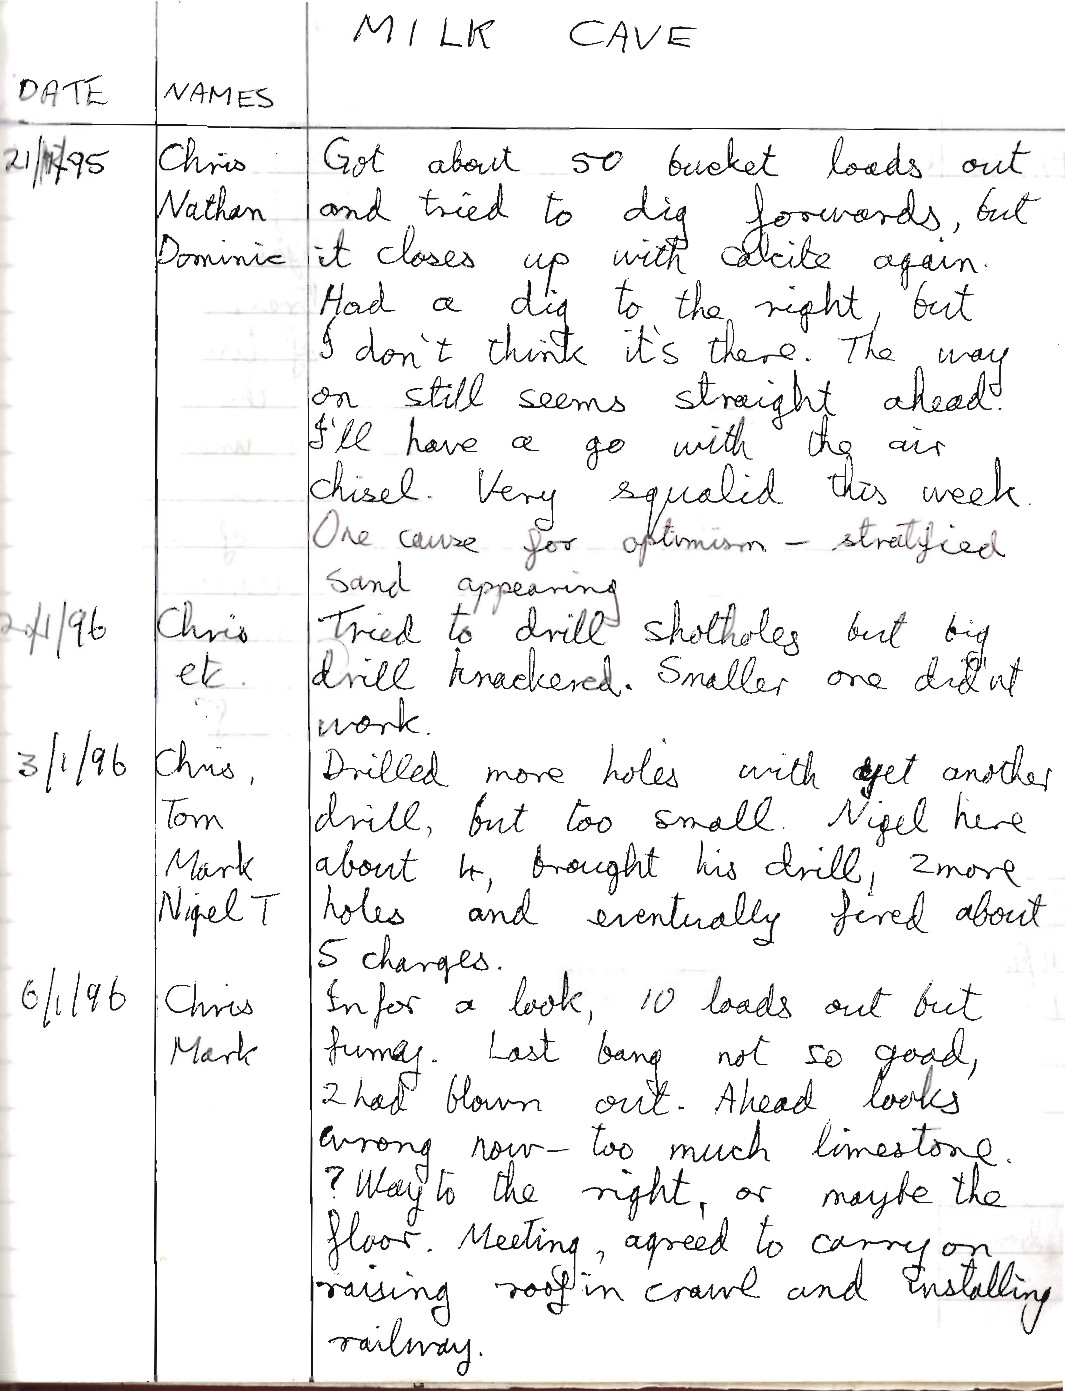 MILK CAVE
DATE NAMES
21/12/95 Chris Got about 50 bucket loads out
Nathan and tried to dig forwards, but
Dominic it closes up with calcite again.
Had a dig to the right, but
I don't think it's there. The way
on still seems straight ahead.
I'll have a go with the air
chisel. Very squalid this week.
One cause for optimism - stratified
sand appearing
/1/96 Chris Tried to drill shotholes but big
etc. drill knackered. Smaller one did'nt
work.
3/1/96 Chris, Drilled more holes with yet another
Tom drill, but too small. Nigel here
Mark about 4, brought his drill, 2 more
Nigel T holes and eventually fired about
5 charges.
6/1/96 Chris In for a look, 10 loads out but
Mark fumey. Last bang not so good,
2 had blown out. Ahead looks
wrong now - too much limestone.
? Way to the right, or maybe the
floor. Meeting, agreed to carry on
raising roof in crawl and installing
railway.